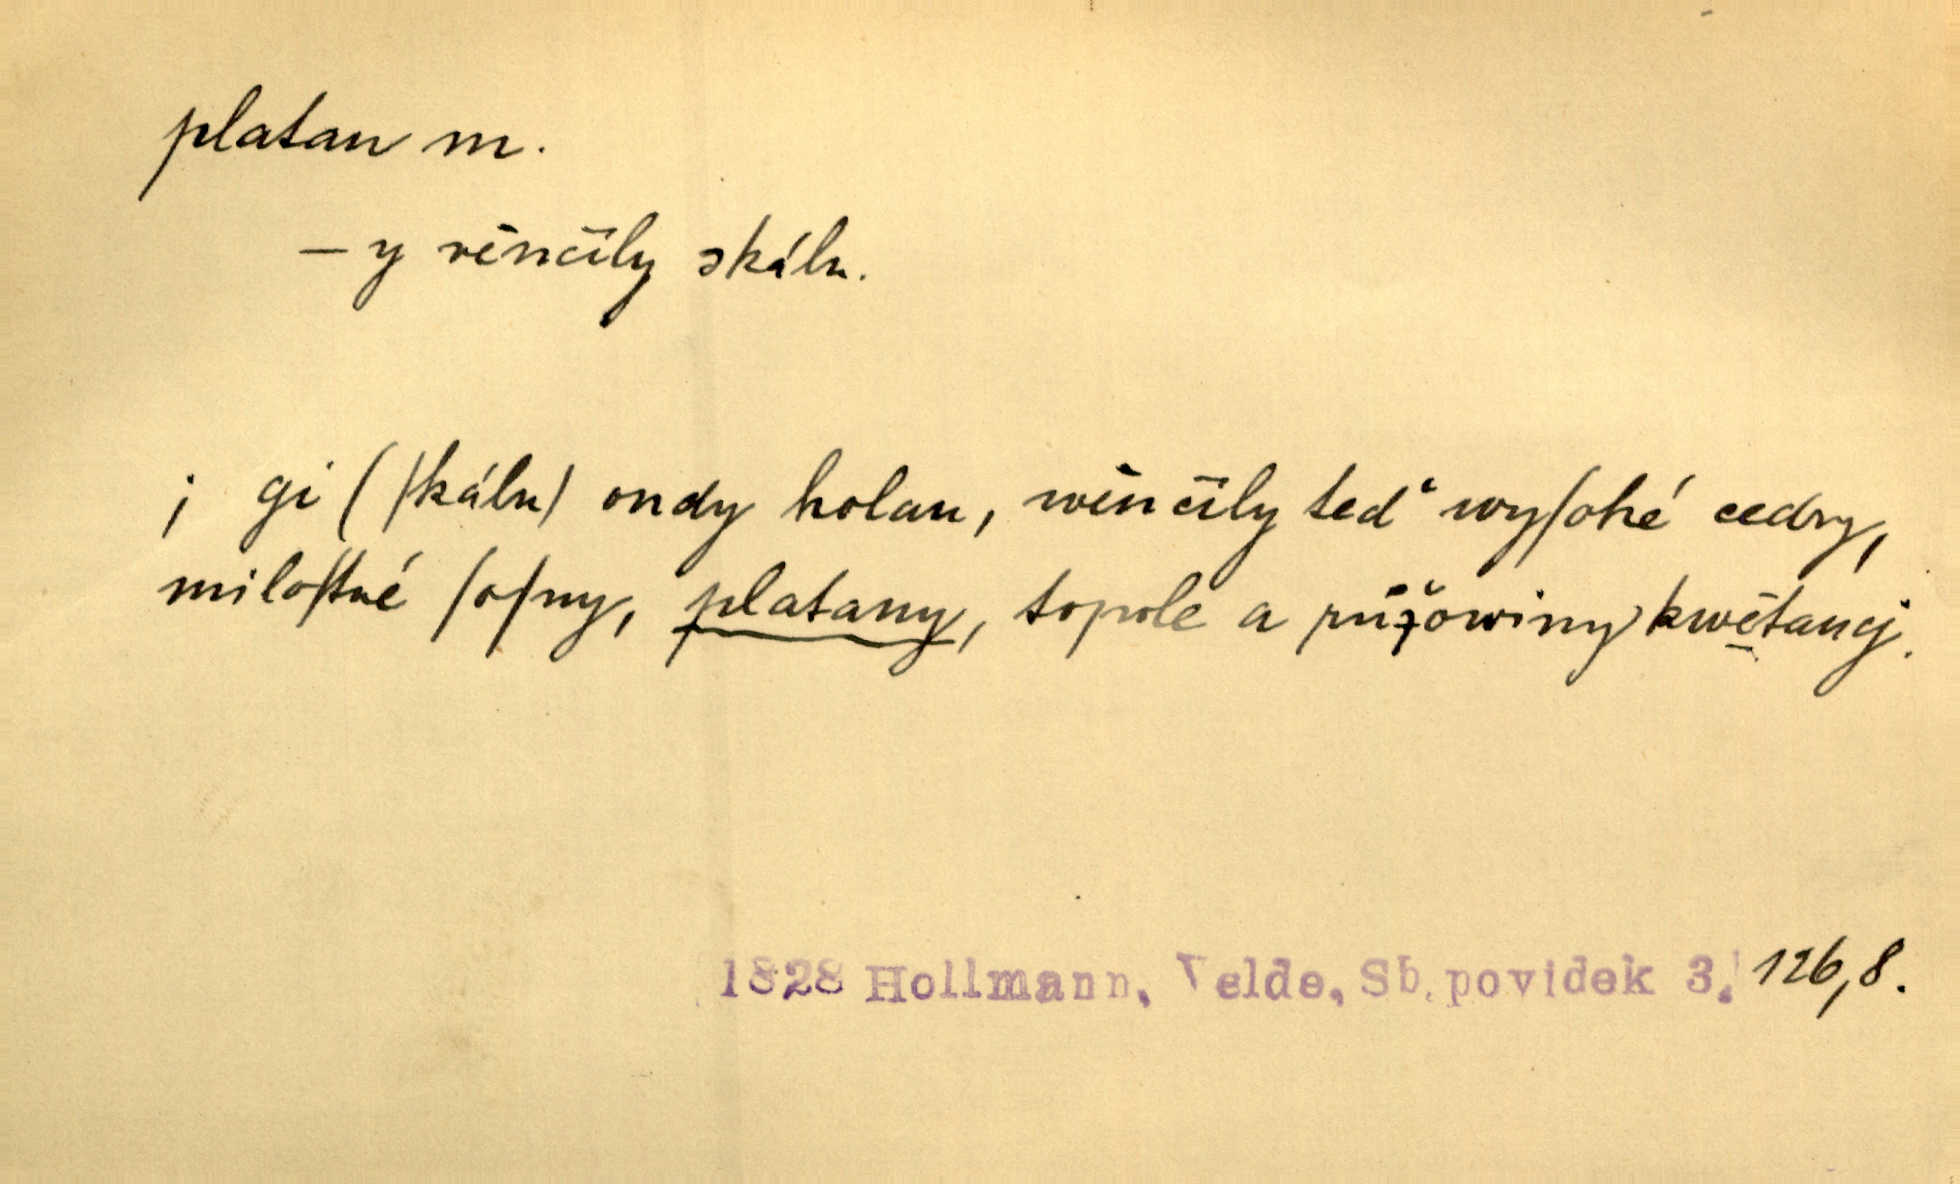 platan m.
– y věnčily skálu.
; gi (ſkálu) ondy holau, wěnčily teď wyſoké cedry,
miloſtné ſoſny, platany, topole a růžowiny kwětaucj.
1828 Hollmann, Velde, Sb. povídek 3. 126,8.